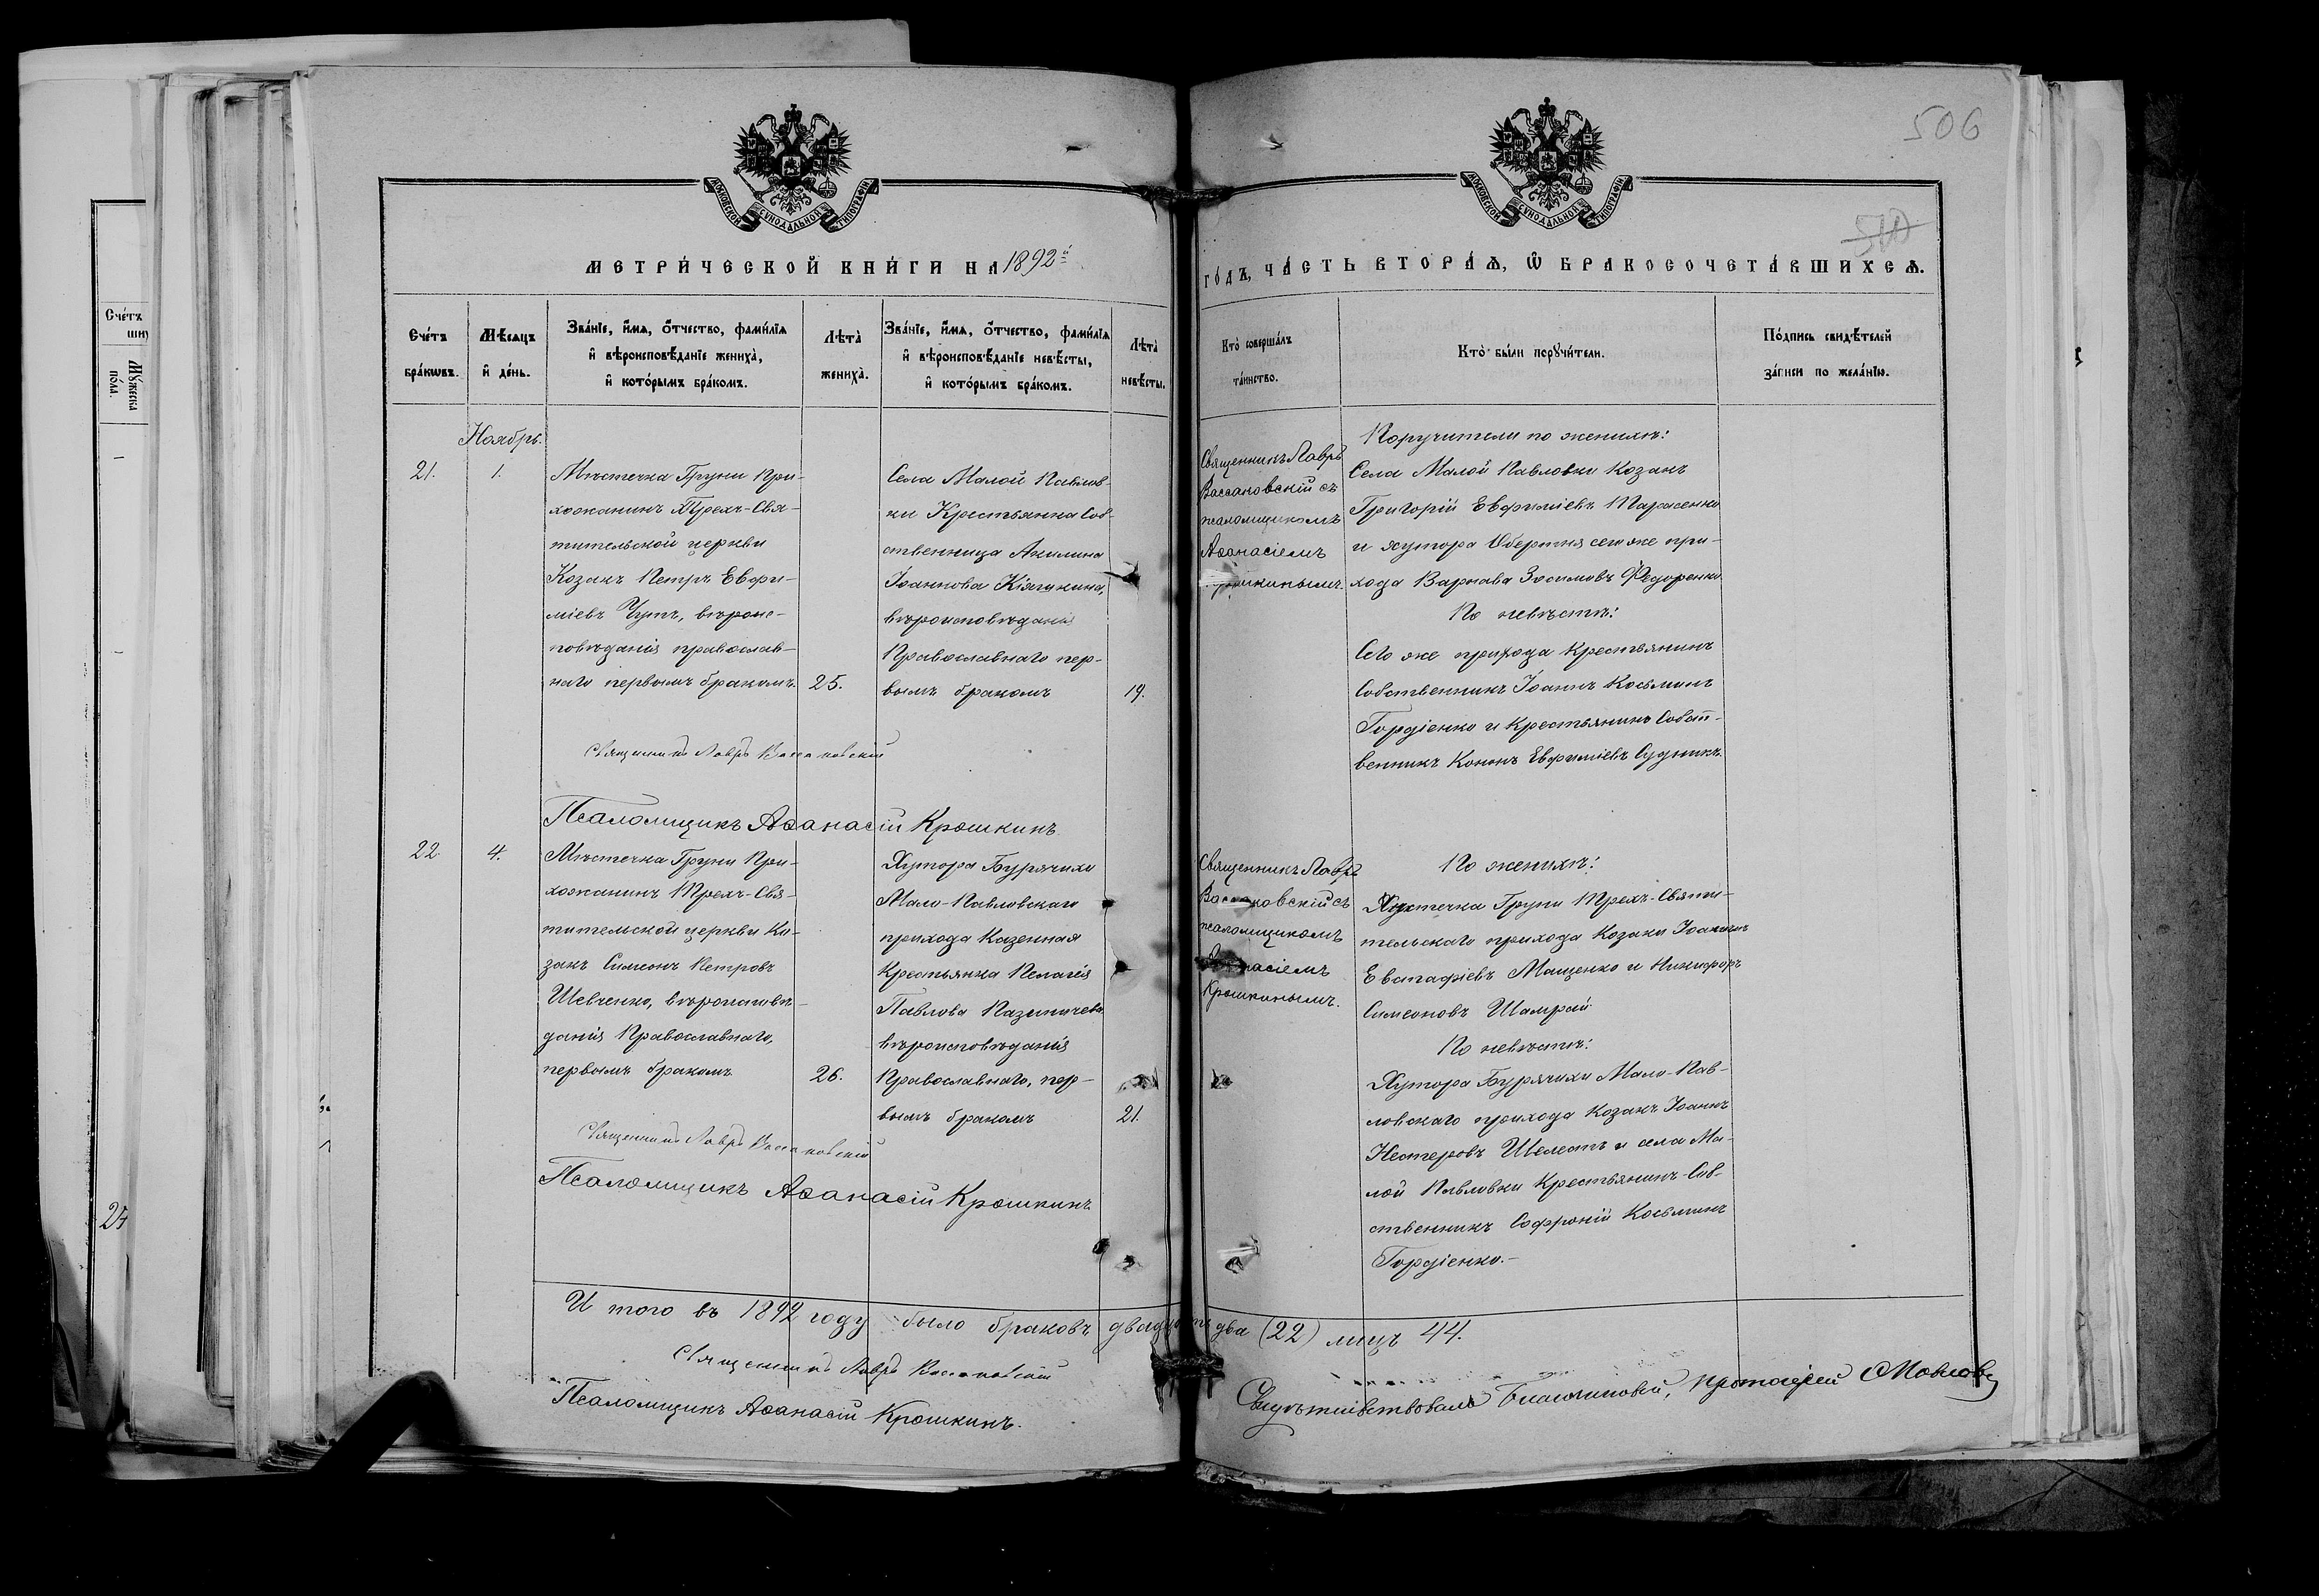 506
510
МОСКОВСКОЙ СУНОДАЛЬНОЙ ТИПОГРАФІИ
МОСКОВСКОЙ СУНОДАЛЬНОЙ ТИПОГРАФІИ
МЕТРИ́ЧЕСКОЙ КНИ́ГИ НА 1892й
ГО́ДЪ, ЧА́СТЬ ВТОРА́Ѧ, Ѡ҆ БРАКОСОЧЕТА́ВШИХСѦ.
Сче́тъ
Мꙋ́жеска
по́ла.
24
Сче́тъ
бра́кѡвъ.
Мѣ́сѧцъ
и҆ де́нь.
Зва́нїе, и҆́мѧ, ѻ҆́тчество, фами́лїѧ
и҆ вѣроисповѣ́данїе жениха̀,
и҆ кото́рымъ бра́комъ.
Лѣта̀
жениха̀.
Зва́нїе, и҆́мѧ, ѻ҆́тчество, фами́лїѧ
и҆ вѣроисповѣ́данїе невѣ́сты,
и҆ кото́рымъ бра́комъ.
Лѣта̀
невѣ́сты.
Кто̀ соверша́лъ
та́инство.
Кто̀ бы́ли порꙋчи́тели.
По́дпись свидѣ́телей
за́писи по жела́нїю.
Ноябрь.
21.
1.
Мѣстечка Груни При-
хожанинъ Трехъ-Свя-
тительской церкви
Козакъ Петръ Евфи-
міевъ Чупъ, вѣроис-
повѣданія православ-
наго первымъ бракомъ.
25.
Села Малой Павлов-
ки Крестьянка Соб-
ственница Акилина
Іоаннова
вѣроисповѣданія
Православнаго пер-
вымъ бракомъ
19.
Священникъ Лавръ
Вассаковскій съ
псаломщикомъ
Аѳанасіемъ
Крошкинымъ.
Поручители по женихѣ:
Села Малой Павловки Козакъ
Григорій Евфиміевъ Тарасенко
и хутора сего же при-
хода Варнава Зосимовъ Федоренко
По невѣстѣ:
Сего же прихода Крестьянинъ
Собственникъ Іоаннъ Косьминъ
Гордіенко и Крестьянинъ Собст-
венникъ Кононъ Евфиміевъ Судникъ.
Священникъ Лавръ Вассаковскій
Псаломщикъ Аѳанасій Крошкинъ
22
4.
Мѣстечка Груни При-
хожанинъ Трехъ-Свя-
тительской церкви Ко-
закъ Симеонъ Петровъ
Шевченко, вѣроисповѣ-
данія Православнаго,
первымъ бракомъ
26.
Хутора Бурячихи
Мало-Павловскаго
прихода Казенная
Крестьянка Пелагія
Павлова
вѣроисповѣданія
Православнаго, пер-
вымъ бракомъ
21.
Священникъ Лавръ
Вассаковскій съ
псаломщикомъ
Аѳанасіемъ
Крошкинымъ.
По женихѣ:
Мѣстечка Груни Трехъ-Святи-
тельскаго прихода Козаки Іоакимъ
Евстафіевъ Мащенко и Никифоръ
Симеоновъ Шамрай
По невѣстѣ:
Хутора Бурячихи Мало-Пав-
ловскаго прихода Козакъ Іоаннъ
Нестеровъ Шелестъ и села Ма-
лой Павловки Крестьянинъ-Соб-
ственникъ Софроній Косьминъ
Гордіенко.-
Священникъ Лавръ Вассаковскій
Псаломщикъ Аѳанасій Крошкинъ
И того въ 1892 году было браковъ двадцать два (22) лицъ 44.
Священникъ Лавръ Вассаковскій
Псаломщикъ Аѳанасій Крошкинъ.
Свидѣтельствовалъ Благочинный, Протоіерей